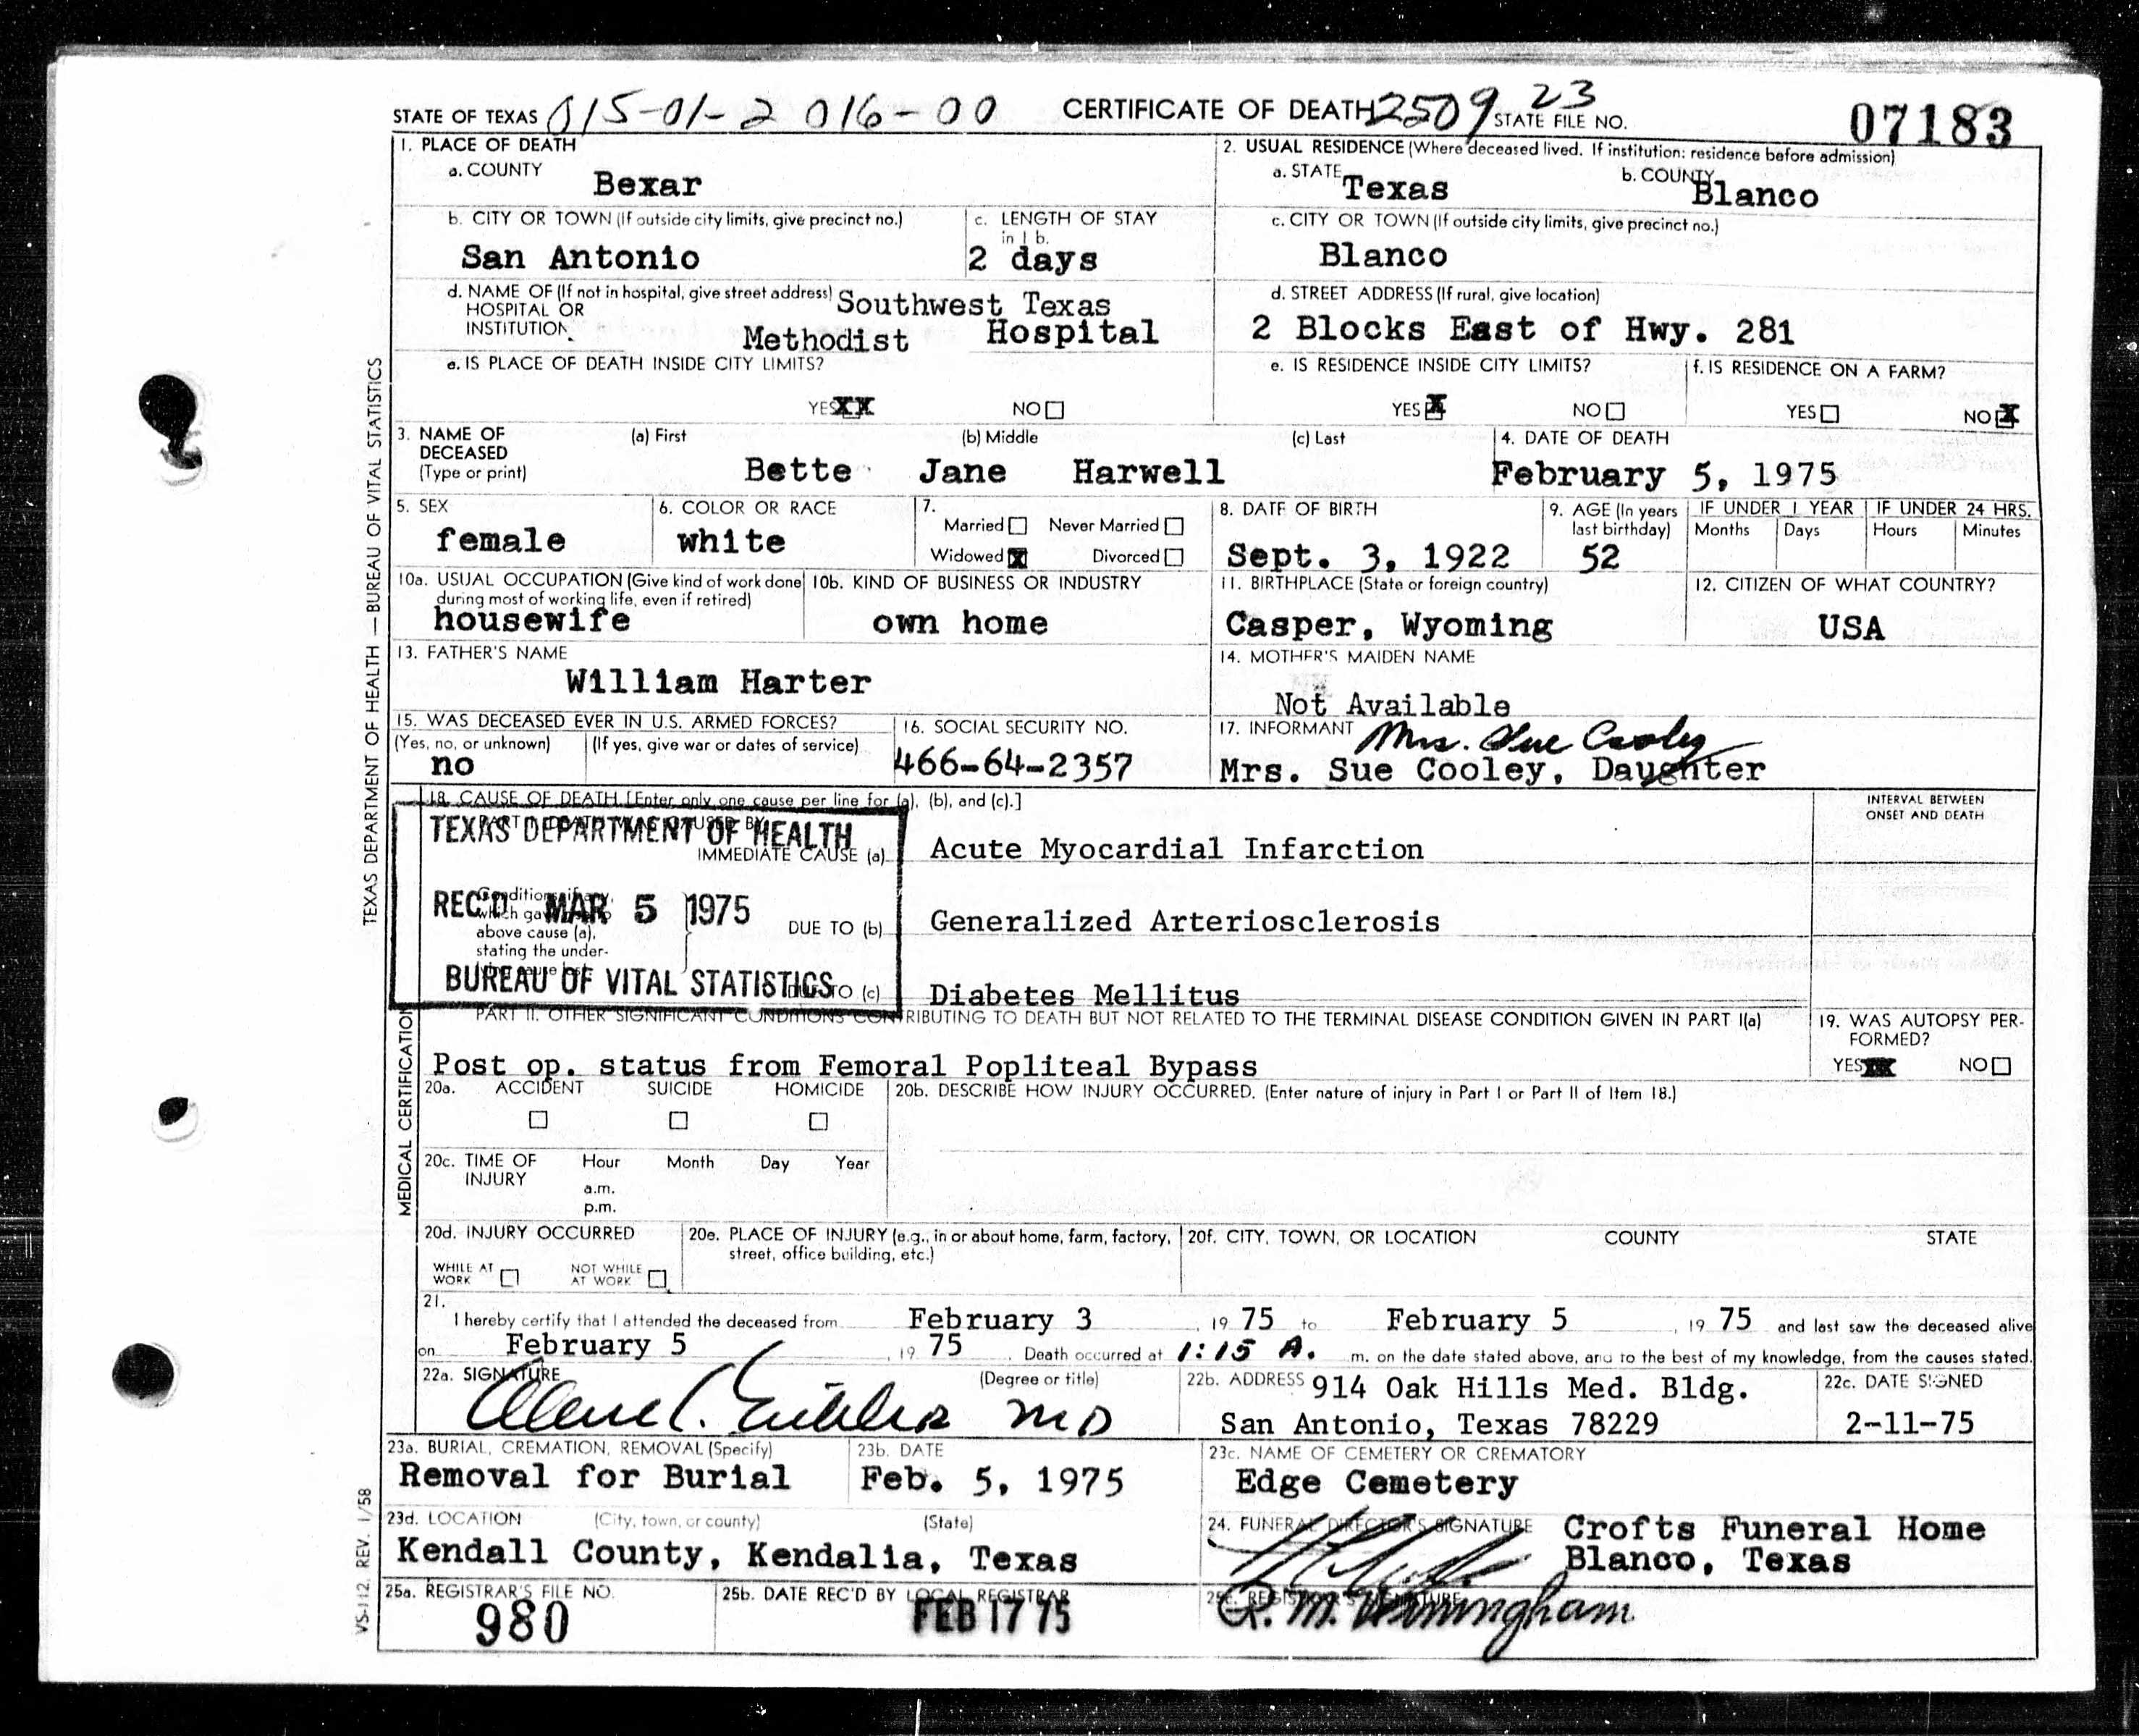 STATE OF TEXAS 015-01-2 016-00 CERTIFICATE OF DEATH 2509 23 STATE FILE NO. 07183
1. PLACE OF DEATH
a. COUNTY Bexar
2. USUAL RESIDENCE (Where deceased lived. If institution: residence before admission)
a. STATE Texas b. COUNTY Blanco
b. CITY OR TOWN (If outside city limits, give precinct no.)
San Antonio
c. LENGTH OF STAY
in 1 b.
2 days
c. CITY OR TOWN (If outside city limits, give precinct no.)
Blanco
d. NAME OF (If not in hospital, give street address) Southwest Texas
HOSPITAL OR
INSTITUTION Methodist Hospital
d. STREET ADDRESS (If rural, give location)
2 Blocks East of Hwy. 281
e. IS PLACE OF DEATH INSIDE CITY LIMITS?
YES XX NO
e. IS RESIDENCE INSIDE CITY LIMITS?
YES X NO
f. IS RESIDENCE ON A FARM?
YES NO X
3. NAME OF
DECEASED
(Type or print)
(a) First (b) Middle (c) Last
Bette Jane Harwell
4. DATE OF DEATH
February 5, 1975
5. SEX
female
6. COLOR OR RACE
white
7.
Married Never Married
Widowed X Divorced
8. DATE OF BIRTH
Sept. 3, 1922
9. AGE (In years
last birthday)
52
IF UNDER 1 YEAR
Months Days
IF UNDER 24 HRS.
Hours Minutes
10a. USUAL OCCUPATION (Give kind of work done
during most of working life, even if retired)
housewife
10b. KIND OF BUSINESS OR INDUSTRY
own home
11. BIRTHPLACE (State or foreign country)
Casper, Wyoming
12. CITIZEN OF WHAT COUNTRY?
USA
13. FATHER'S NAME
William Harter
14. MOTHER'S MAIDEN NAME
Not Available
15. WAS DECEASED EVER IN U.S. ARMED FORCES?
(Yes, no, or unknown) (If yes, give war or dates of service)
no
16. SOCIAL SECURITY NO.
466-64-2357
17. INFORMANT Mrs. Sue Cooley
Mrs. Sue Cooley, Daughter
18. CAUSE OF DEATH [Enter only one cause per line for (a), (b), and (c).]
INTERVAL BETWEEN
ONSET AND DEATH
TEXAS DEPARTMENT OF HEALTH
REC'D MAR 5 1975
BUREAU OF VITAL STATISTICS
IMMEDIATE CAUSE (a) Acute Myocardial Infarction
above cause (a),
stating the under-
DUE TO (b) Generalized Arteriosclerosis
DUE TO (c) Diabetes Mellitus
PART II. OTHER SIGNIFICANT CONDITIONS CONTRIBUTING TO DEATH BUT NOT RELATED TO THE TERMINAL DISEASE CONDITION GIVEN IN PART I(a)
Post op. status from Femoral Popliteal Bypass
19. WAS AUTOPSY PER-
FORMED?
YES XX NO
20a. ACCIDENT SUICIDE HOMICIDE
20b. DESCRIBE HOW INJURY OCCURRED. (Enter nature of injury in Part I or Part II of Item 18.)
20c. TIME OF
INJURY
Hour Month Day Year
a.m.
p.m.
20d. INJURY OCCURRED
WHILE AT
WORK
NOT WHILE
AT WORK
20e. PLACE OF INJURY (e.g., in or about home, farm, factory,
street, office building, etc.)
20f. CITY, TOWN, OR LOCATION COUNTY STATE
21.
I hereby certify that I attended the deceased from February 3, 1975 to February 5, 1975 and last saw the deceased alive
on February 5, 1975. Death occurred at 1:15 A. m. on the date stated above, and to the best of my knowledge, from the causes stated.
22a. SIGNATURE (Degree or title)
MD
22b. ADDRESS 914 Oak Hills Med. Bldg.
San Antonio, Texas 78229
22c. DATE SIGNED
2-11-75
23a. BURIAL, CREMATION, REMOVAL (Specify)
Removal for Burial
23b. DATE
Feb. 5, 1975
23c. NAME OF CEMETERY OR CREMATORY
Edge Cemetery
23d. LOCATION (City, town, or county) (State)
Kendall County, Kendalia, Texas
24. FUNERAL DIRECTOR'S SIGNATURE Crofts Funeral Home
Blanco, Texas
25a. REGISTRAR'S FILE NO.
980
25b. DATE REC'D BY LOCAL REGISTRAR
FEB 17 75
25c. REGISTRAR'S SIGNATURE
TEXAS DEPARTMENT OF HEALTH — BUREAU OF VITAL STATISTICS
MEDICAL CERTIFICATION
VS-112, REV. 1/58